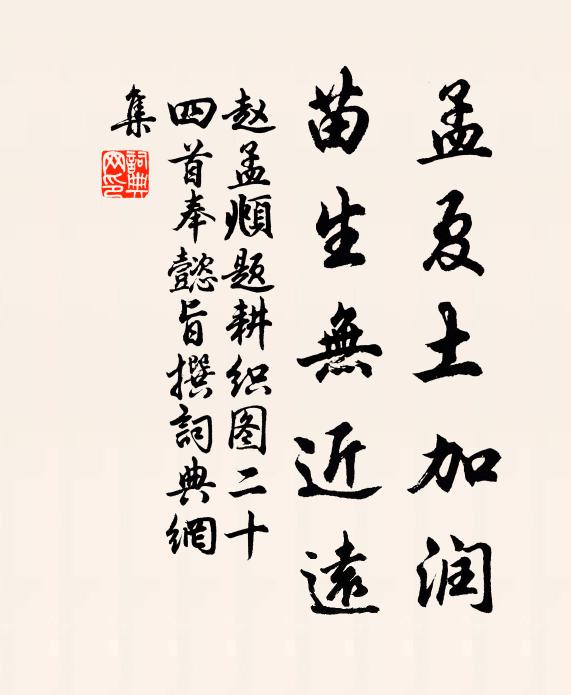 孟夏土加润
苗生無近遠
赵孟頫题耕织图二十
四首奉懿旨撰詞典網
集
詞典网印